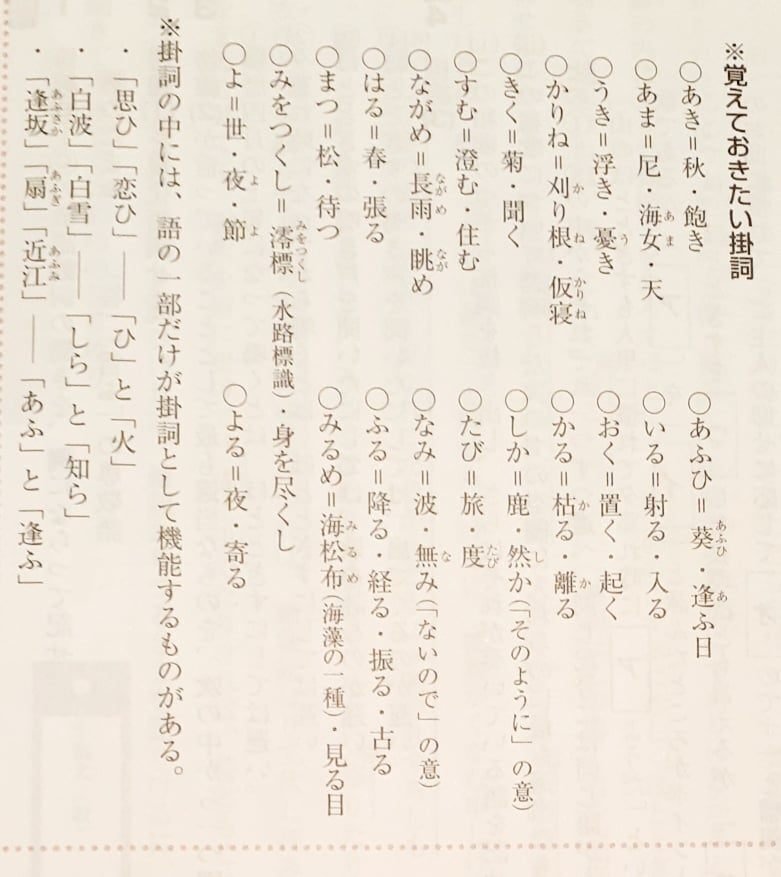 ※覚えておきたい掛詞
○あき＝秋・飽き
○あふひ＝葵・逢ふ日
○あま＝尼・海女・天
○いる＝射る・入る
○うき＝浮き・憂き
○おく＝置く・起く
○かりね＝刈り根・仮寝
○かる＝枯る・離る
○きく＝菊・聞く
○しか＝鹿・然か(「そのように」の意)
○すむ＝澄む・住む
○たび＝旅・度
○ながめ＝長雨・眺め
○なみ＝波・無み(「ないので」の意)
○はる＝春・張る
○ふる＝降る・経る・振る・古る
○まつ＝松・待つ
○みるめ＝海松布(海藻の一種)・見る目
○みをつくし＝澪標(水路標識)・身を尽くし
○よ＝世・夜・節
○よる＝夜・寄る
※掛詞の中には、語の一部だけが掛詞として機能するものがある。
・「思ひ」「恋ひ」――「ひ」と「火」
・「白波」「白雪」――「しら」と「知ら」
・「逢坂」「扇」「近江」――「あふ」と「逢ふ」